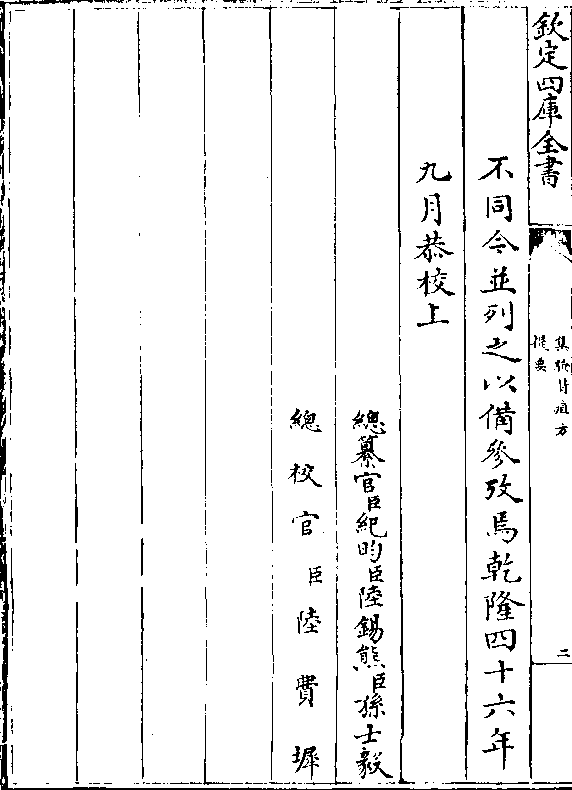 欽定四庫全書
集驗背疽方
提要
二
不同今並列之以備參攷焉乾隆四十六年
九月恭校上
總纂官臣紀昀臣陸錫熊臣孫士毅
總校官臣陸費墀